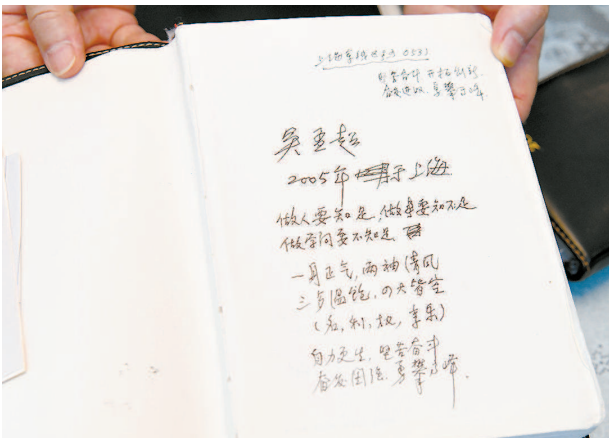 艰苦奋斗 开拓创新
奋发进取 勇攀高峰
吴孟超
2005年 于上海
做人要知足,做事要知不足
做学问要不知足
一身正气,两袖清风
三步温饱,四大皆空
(名,利,权,享乐)
自力更生,艰苦奋斗
奋发图强,勇攀高峰.